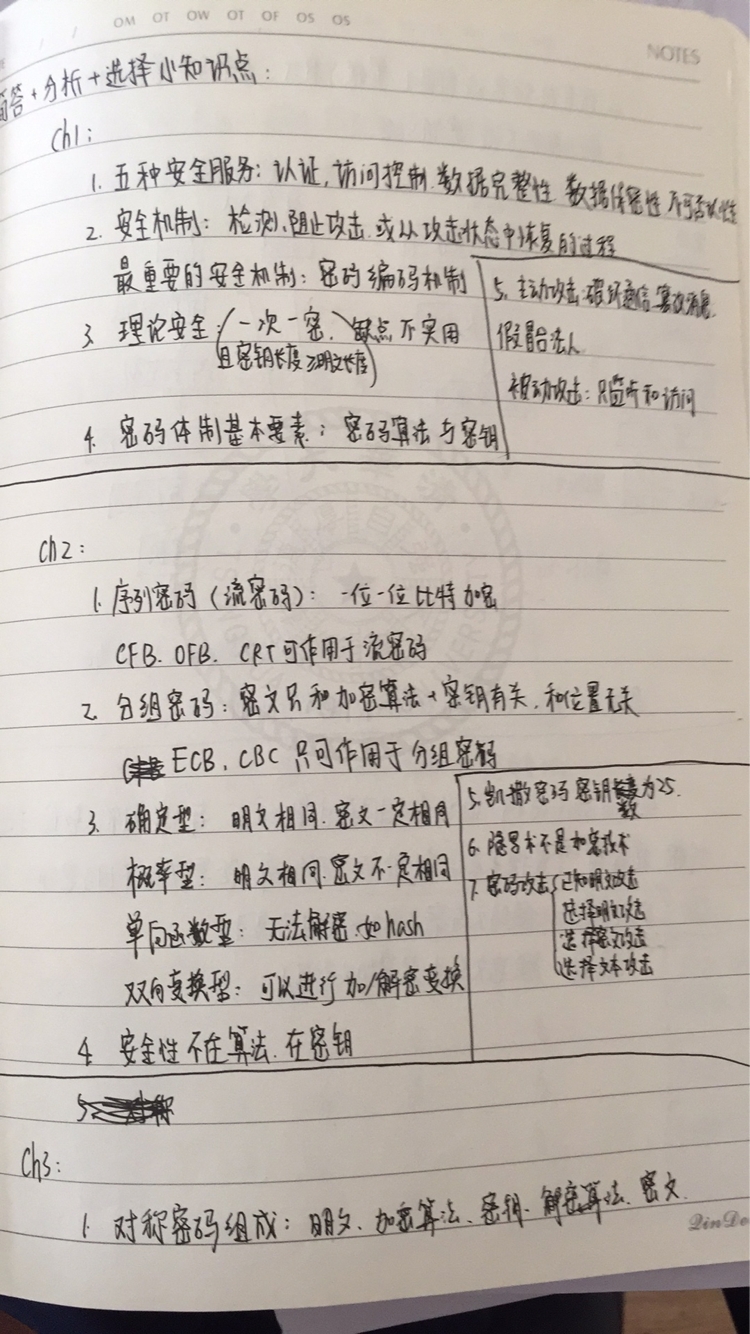 OM OT OW OT OF OS OS
NOTES
简答+分析+选择小知识点：
Ch1：
1. 五种安全服务：认证，访问控制.数据完整性 数据保密性 不可否认性
2. 安全机制：检测、阻止攻击.或从攻击状态中恢复的过程
最重要的安全机制：密码编码机制
3. 理论安全：(一次一密，缺点不实用
且密钥长度≥明文长度)
4. 密码体制基本要素：密码算法与密钥
5. 主动攻击：破坏通信.篡改消息.
假冒合法人.
被动攻击：只监听和访问
Ch2：
1. 序列密码（流密码）：一位一位比特加密
CFB、OFB、CRT可作用于流密码
2. 分组密码：密文只和加密算法+密钥有关，和位置无关
ECB、CBC 只可作用于分组密码
3. 确定型：明文相同.密文一定相同
概率型：明文相同.密文不一定相同
单向函数型：无法解密.如hash
双向变换型：可以进行加/解密变换
4. 安全性不在算法.在密钥
5. 凯撒密码密钥数为25.
6. 隐写术不是加密技术
7. 密码攻击{已知明文攻击
选择明文攻击
选择密文攻击
选择文本攻击
Ch3：
1. 对称密码组成：明文、加密算法、密钥、解密算法、密文.